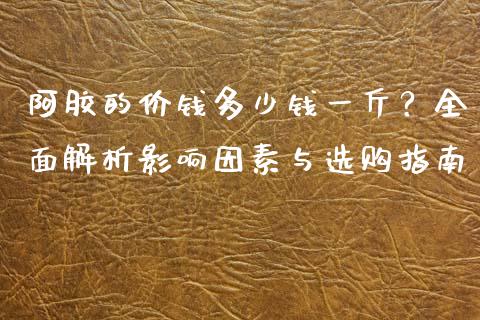 阿胶的价钱多少钱一斤？全
面解析影响因素与选购指南